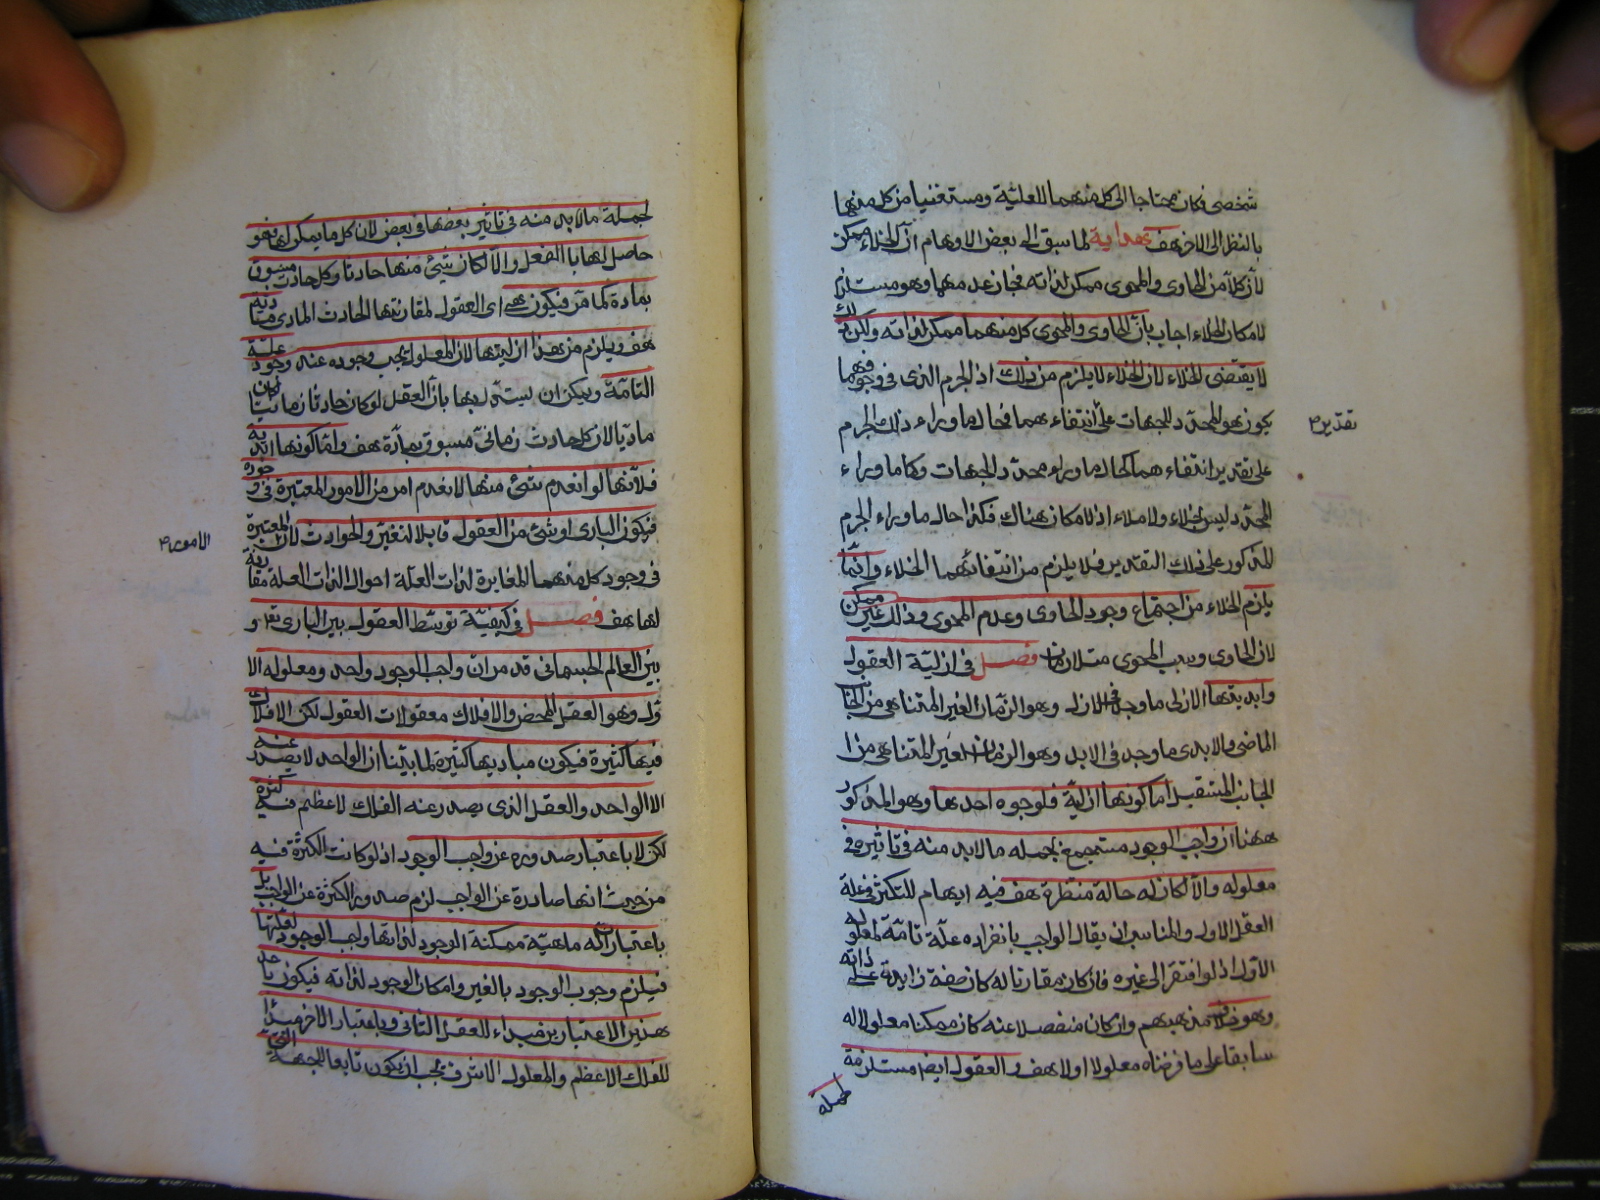 شخصى فكان محتاجا الى كل منهما للعلية ومستغنيا من كل منهما
بالنظر الى الاخر هف هداية لما سبق الى بعض الاوهام ان الخلاء ممكن
لان كلا من الحاوى والمحوى ممكن لذاته فجاز عدمهما وهو مستلزم
لامكان الخلاء اجاب بان الحاوى والمحوى كل منهما ممكن لذاته ولكن ذلك
لا يقتضى الخلاء لان الخلاء لا يلزم من ذلك اذ الجرم الذى فى وجوفهما
يكون هو المحدد للجهات على انتفاء هما فحال ما وراء ذلك الجرم
تقدير
على تقدير انتفاء هما كحال ما وراء محدد الجهات وكما ما وراء
المحدد ليس بخلاء ولا ملاء اذ لا مكان هناك فكذا حال ما وراء الجرم
المذكور على ذلك التقدير فلا يلزم من انتفائهما الخلاء وانما
يلزم الخلاء من اجتماع وجود الحاوى وعدم المحوى وذلك غير ممكن
لان الحاوى وسبب المحوى متلازمان فصل فى ازلية العقول
وابديتها الازلى ما وجد فى الازل وهو الزمان الغير المتناهى من الجانب
الماضى والابدى ما وجد فى الابد وهو الزمان الغير المتناهى من ا
الجانب المستقبل اما كونها ازلية فلوجوه احدها وهو المذكور
ههنا ان واجب الوجود مستجمع بجمله مالابد منه فى تاثيره فى
معلوله والا لكان له حالة منتظرة هف فيه ايهام للتكثر فى علة
العقل الاول والمناسب ان يقال الواجب بانفراده علة تامة لمعلوله
الاول اذ لو افتقر الى غيره فان كان مقارنا له كان صفة زايدة على ذاته
وهو خلاف مذهبهم وان كان منفصلا عنه كان ممكنا معلولا له
سابقا على ما فرضناه معلولا اولا هف والعقول ايضا مستلزمة
لجمله
لجملة مالابد منه فى تاثير بعضها فى بعض لان كل ما يمكن لها فهو
حاصل لها بالفعل والا لكان شئ منها حادثا وكل حادث مسبوق
بمادة كما مر فيكون هى اى العقول لمقارنتها الحادث المادى مادية
هف ويلزم من هذا ازليتها لان المعلول يجب وجوده عند وجود علته
التامة ويمكن ان يستدل بها بان العقل لو كان حادثا زمانيا لكان
ماديا لان كل حادث زمانى مسبوق بمادة هف واما كونها ابدية
فلانها لو انعدم شئ منها لانعدم امر من الامور المعتبرة فى وجوده
فيكون البارى او شئ من العقول قابلا للتغير والحوادث لان المعتبرة
الامور
فى وجود كل منهما المغايرة لذات العلة احوال الذات العلة مقارنة
لها هف فصل فى كيفية توسط العقول بين البارى تعالى و
بين العالم الجسمانى قد مر ان واجب الوجود واحد ومعلوله الا
ول وهو العقل المحض والافلاك معقولات العقول لكن الافلاك
فيها كثيرة فيكون مباديها كثيرة لما بينا ان الواحد لا يصدر عنه
الا الواحد والعقل الذى يصدر عنه الفلك الاعظم فيه كثرة
لكن لا باعتبار صدوره عن واجب الوجود اذ لو كانت الكثرة فيه
من حيث انها صادرة عن الواجب لزم صدور الكثرة عن الواجب بل
باعتبار ان له ماهية ممكنة الوجود لذاتها واجب الوجود لعلتها
فيلزم وجوب الوجود بالغير وامكان الوجود لذاته فيكون باحد
هذين الاعتبارين مبداء للعقل الثانى وباعتبار الاخر مبدأ
للفلك الاعظم والمعلول الاشرف يجب ان يكون تابعا للجهة التى